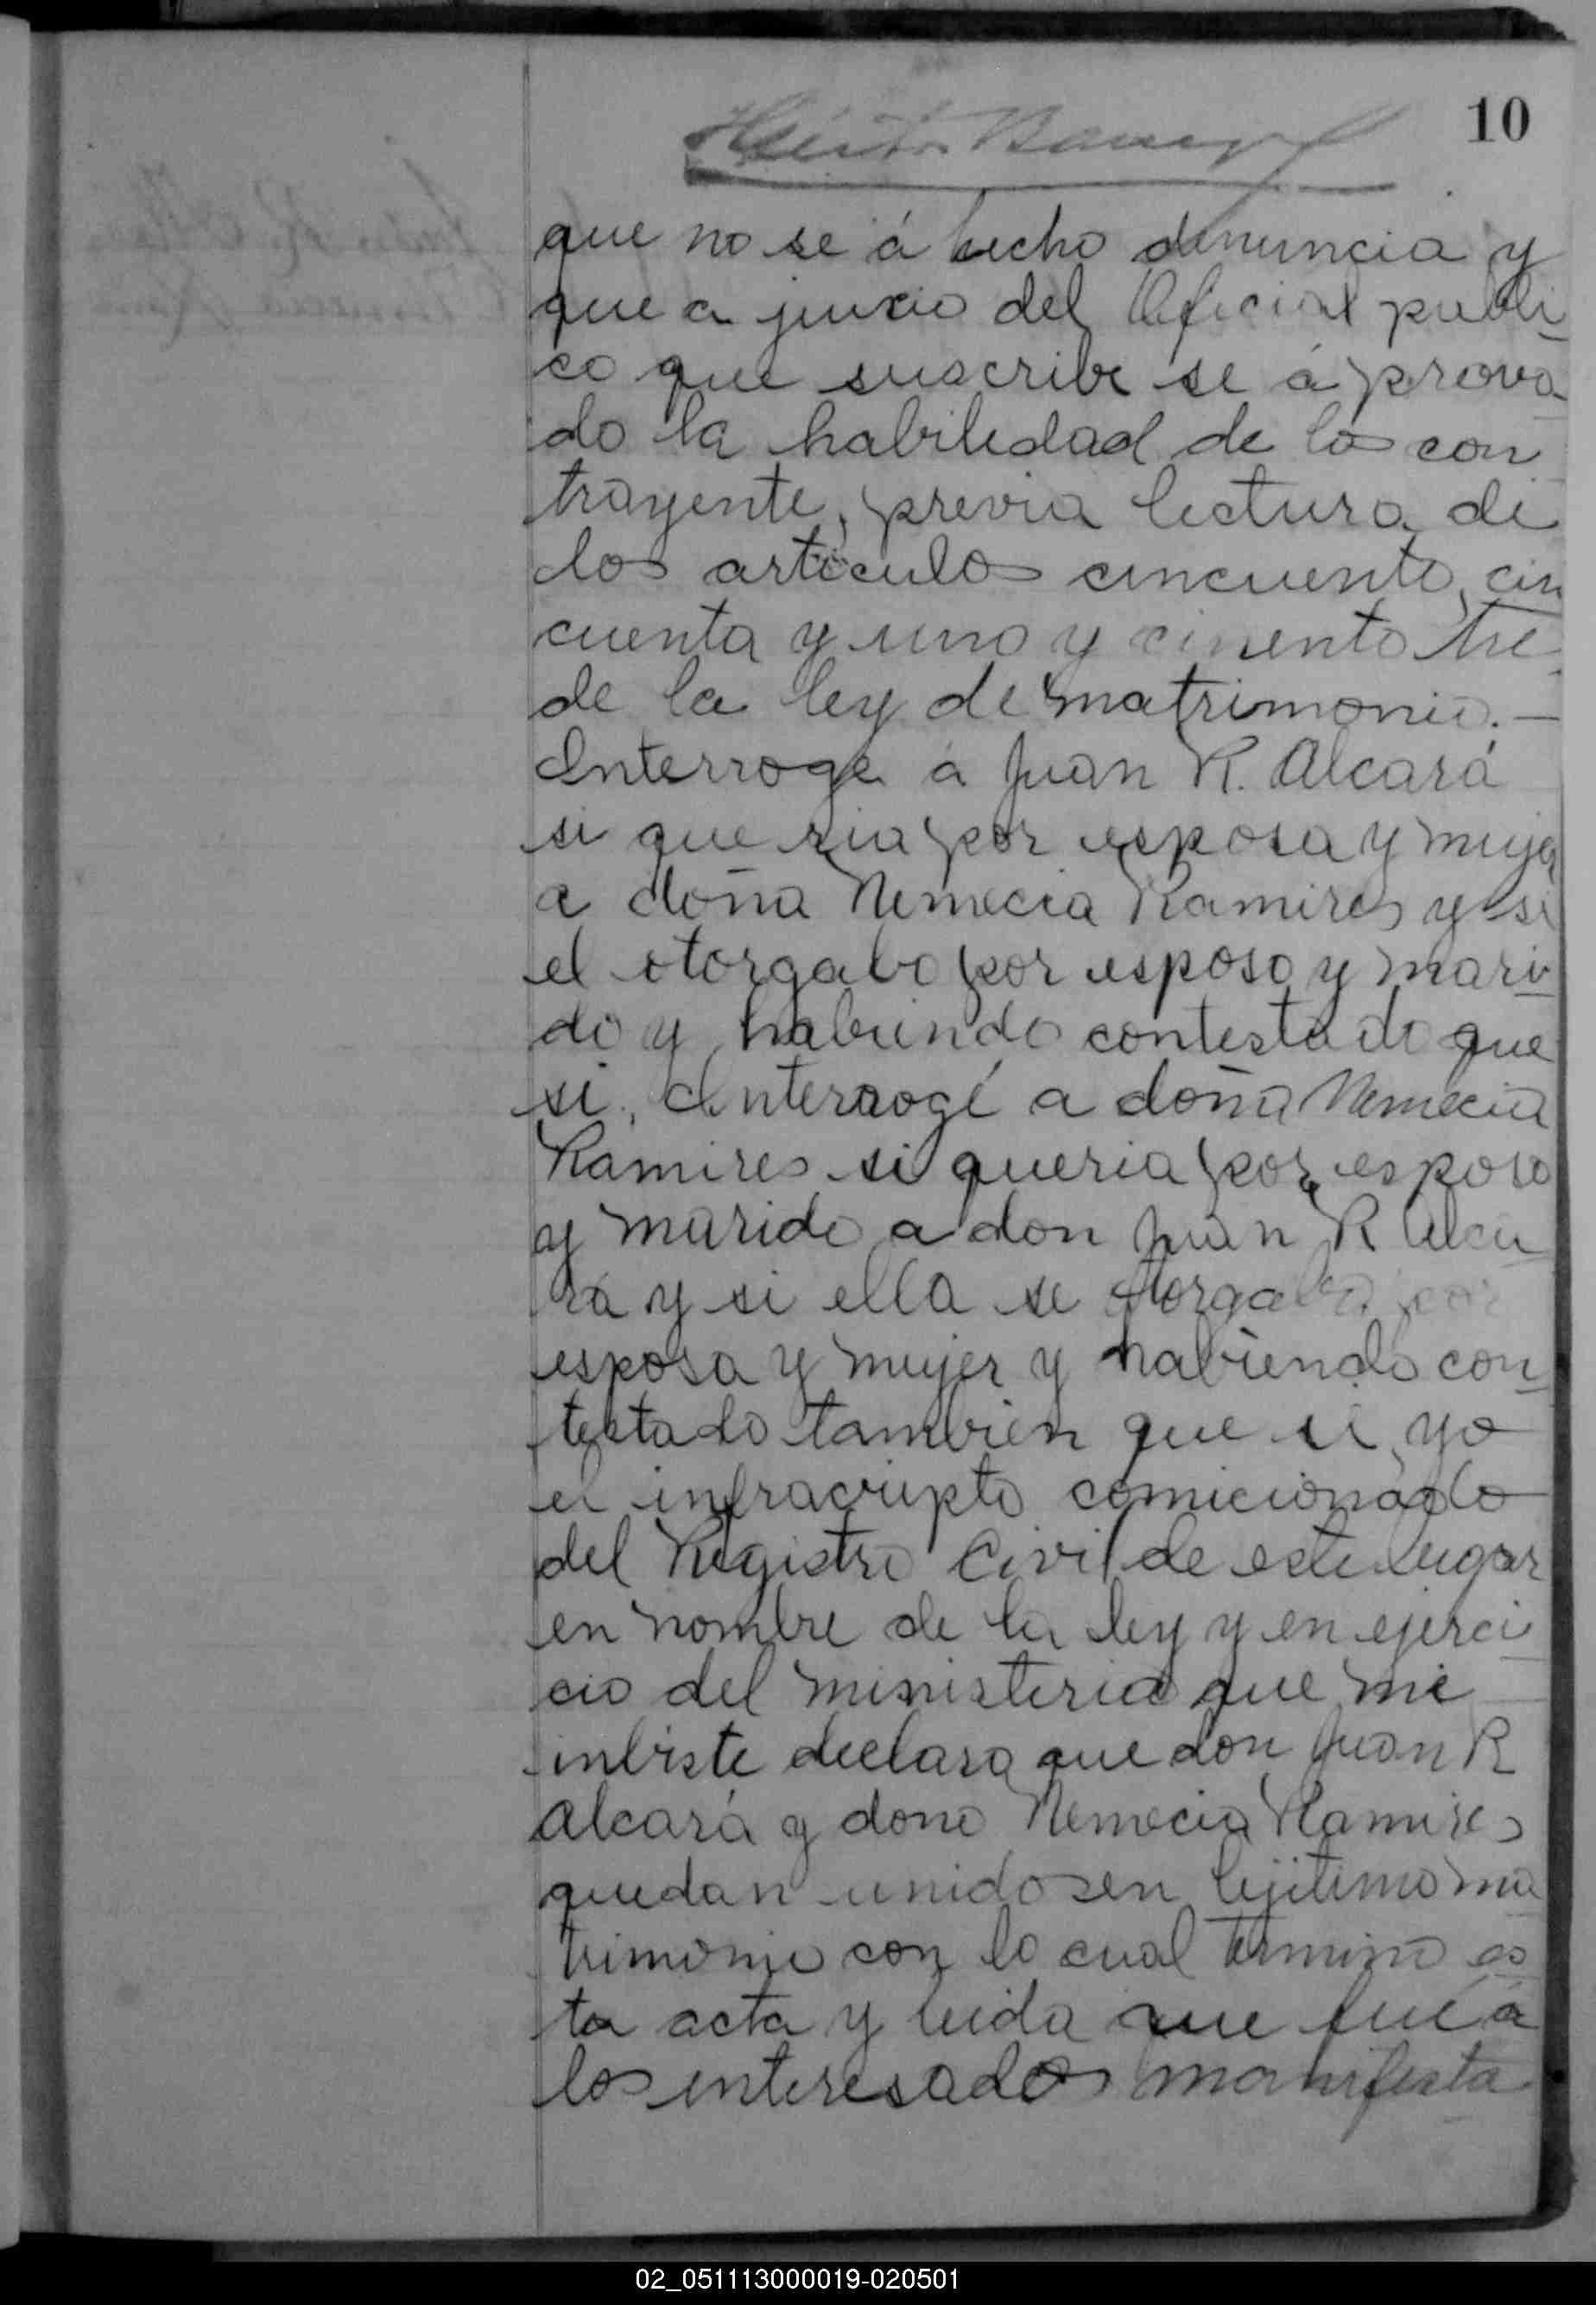 10
que no se á hecho denuncia y
que a juicio del Oficial publi
co que suscribe se á prova
do la habiledad de los con
trayente, previa lectura de
los artículos cincuenta, cin
cuenta y uno y cinenta tre
de la ley de matrimonio. —
Interroge á Juan R. Alcará
si queria por esposa y mujer
a doña Nemecia Ramires y si
el otorgaba por esposo y mari
do y habiendo contestado que
si, Interrogé a doña Nemecia
Ramires si queria por esposo
y marido a don Juan R Alca
rá y si ella se otorgaba por
esposa y mujer y habiendo con
testado tambien que si, yo
el infracripto comicionado
del Registro Civil de este lugar
en nombre de la ley y en ejerci
cio del ministerio que me
inbiste declaro que don Juan R
Alcará y dona Nemecia Ramires
quedan unidos en lejitimo ma
trimonio con lo cual termino es
ta acta y leida que fué a
los interesados manifesta
02_051113000019-020501